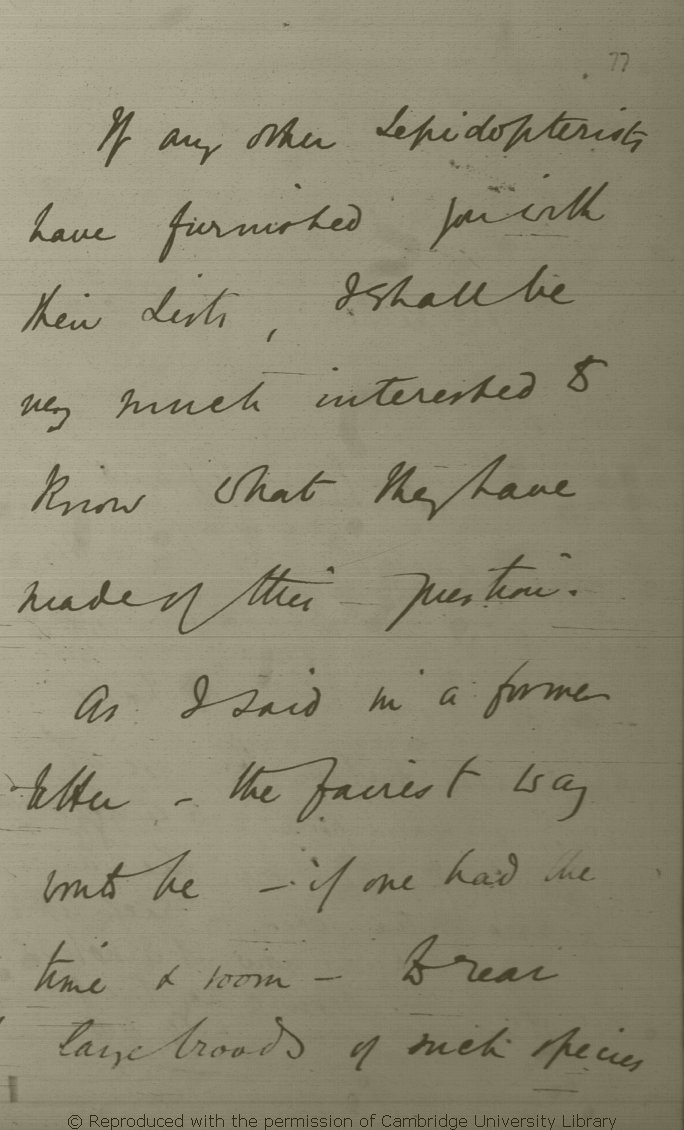 77
If any other Lepidopterists
have furnished you with
their Lists, I shall be
very much interested to
know what they have
made of this question.
As I said in a former
letter – the fairest way
would be – if one had the
time & room – to rear
large broods of such species
© Reproduced with the permission of Cambridge University Library